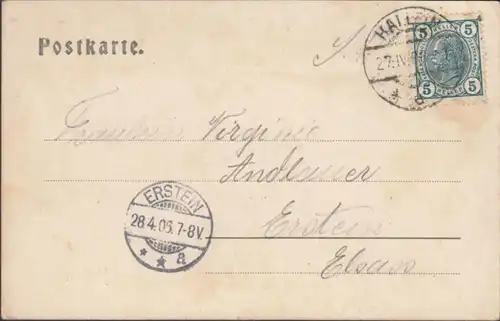 Postkarte.
HALLEIN
27.IV
5 HELLER 5
5 HELLER 5
Fräulein Virginie
Andlauer
Erstein
Elsass
ERSTEIN
28.4.05.7-8V.
* * a